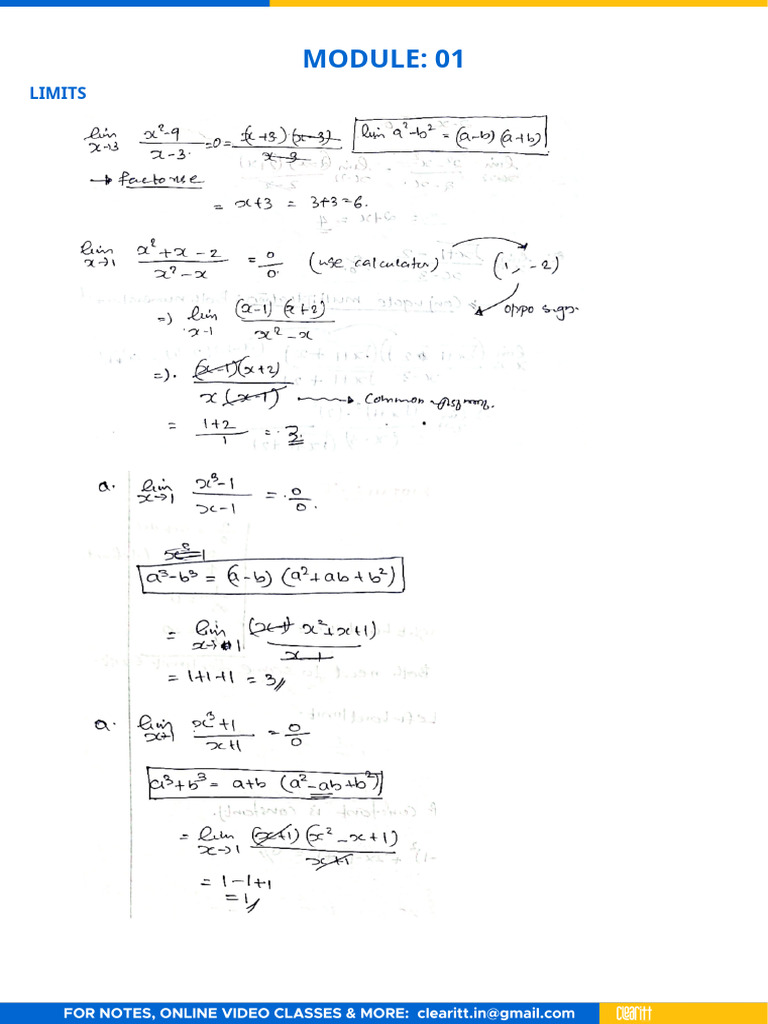 MODULE: 01
LIMITS
lim x→3 x²-9 / x-3 = 0 = (x+3)(x-3) / x-3 lim a²-b² = (a-b)(a+b)
→ factorise
= x+3 = 3+3=6.
lim x→1 x²+x-2 / x²-x = 0/0. (use calculator) (1, -2)
oppo sign.
=) lim x-1 (x-1)(x+2) / x²-x
=). (x-1)(x+2) / x(x-1) → Common
= 1+2 / 1 = 3.
a. lim x→1 x³-1 / x-1 = 0/0.
a³-b³ = (a-b) (a²+ab+b²)
= lim x→1 (x-1) x²+x+1) / x-1
= 1+1+1 = 3//
a. lim x³+1 / x+1 = 0/0
a³+b³ = a+b (a²-ab+b²)
= lim x→1 (x+1)(x²-x+1) / x+1
= 1-1+1
= 1//
FOR NOTES, ONLINE VIDEO CLASSES & MORE: clearitt.in@gmail.com
Clearitt